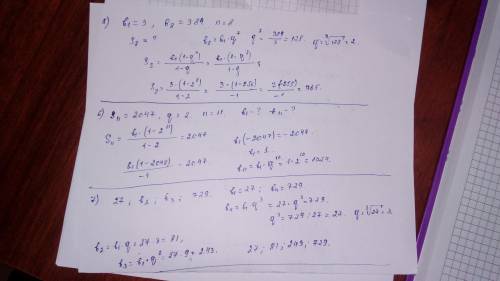 8) b₁ = 3, b₈ = 384 n = 8
S₈ = ? b₈ = b₁·q⁷ q⁷ = 384/3 = 128. q = ⁷√128 = 2.
S₈ = b₁(1-q⁸)/1-q = b₁·(1-q⁸)/1-q
S₈ = 3·(1-2⁸)/1-2 = 3·(1-256)/-1 = 3(-255)/-1 = 765.
6) Sₙ = 2047, q = 2. n = 11 b₁-? bₙ-?
Sₙ = b₁·(1-2¹¹)/1-2 = 2047 b₁(-2047) = -2047.
b₁ = 1.
b₁(1-2048)/-1 = 2047. b₁₁ = b₁·q¹⁰ = 1·2¹⁰ = 1024.
7) 27, b₂; b₃; 729. b₁ = 27; b₄ = 729.
b₄ = b₁·q³ = 27·q³ = 729.
q³ = 729:27 = 27. q = ³√27 = 3
b₂ = b₁·q = 27·3 = 81,
b₃ = b₁·q² = 27·9 = 243. 27; 81; 243; 729.